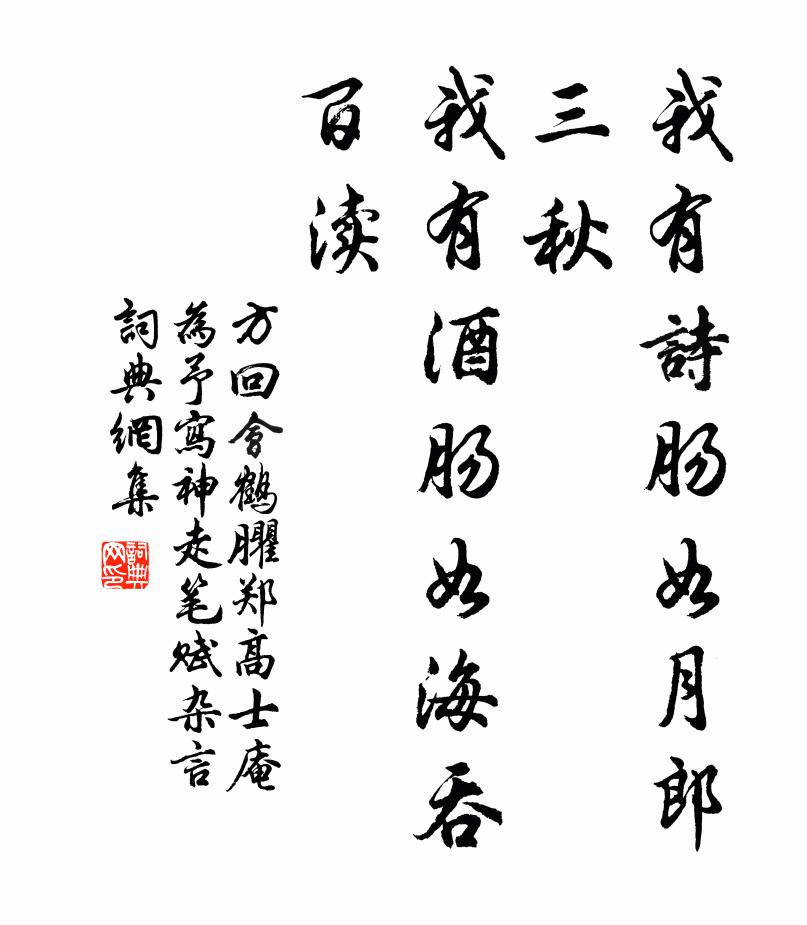 我有詩肠如月郎
三秋
我有酒肠如海吞
百渎
方回會鶴臞郑高士庵
為予寫神走笔赋杂言
詞典網集
詞典网印